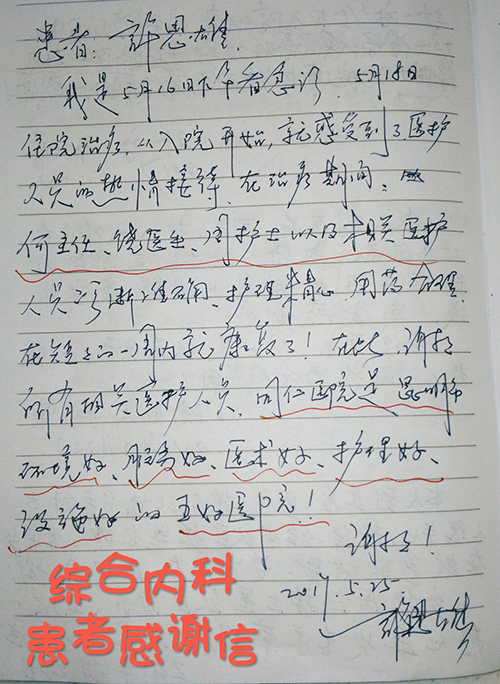 患者：許恩雄
我是5月16日下午看急诊，5月18日
住院治疗，从入院开始，就感受到了医护
人员的热情接待。在治疗期间，
何主任、饶医生、周护士以及相关医护
人员诊断准确、护理精心、用药合理
在短短的一周内就康复了！在此，谢谢
所有相关医护人员。同仁医院是昆明市
环境好、服务好、医术好、护理好、
设施好的五好医院！
谢谢！
2017.5.25
許恩雄
综合内科
患者感谢信